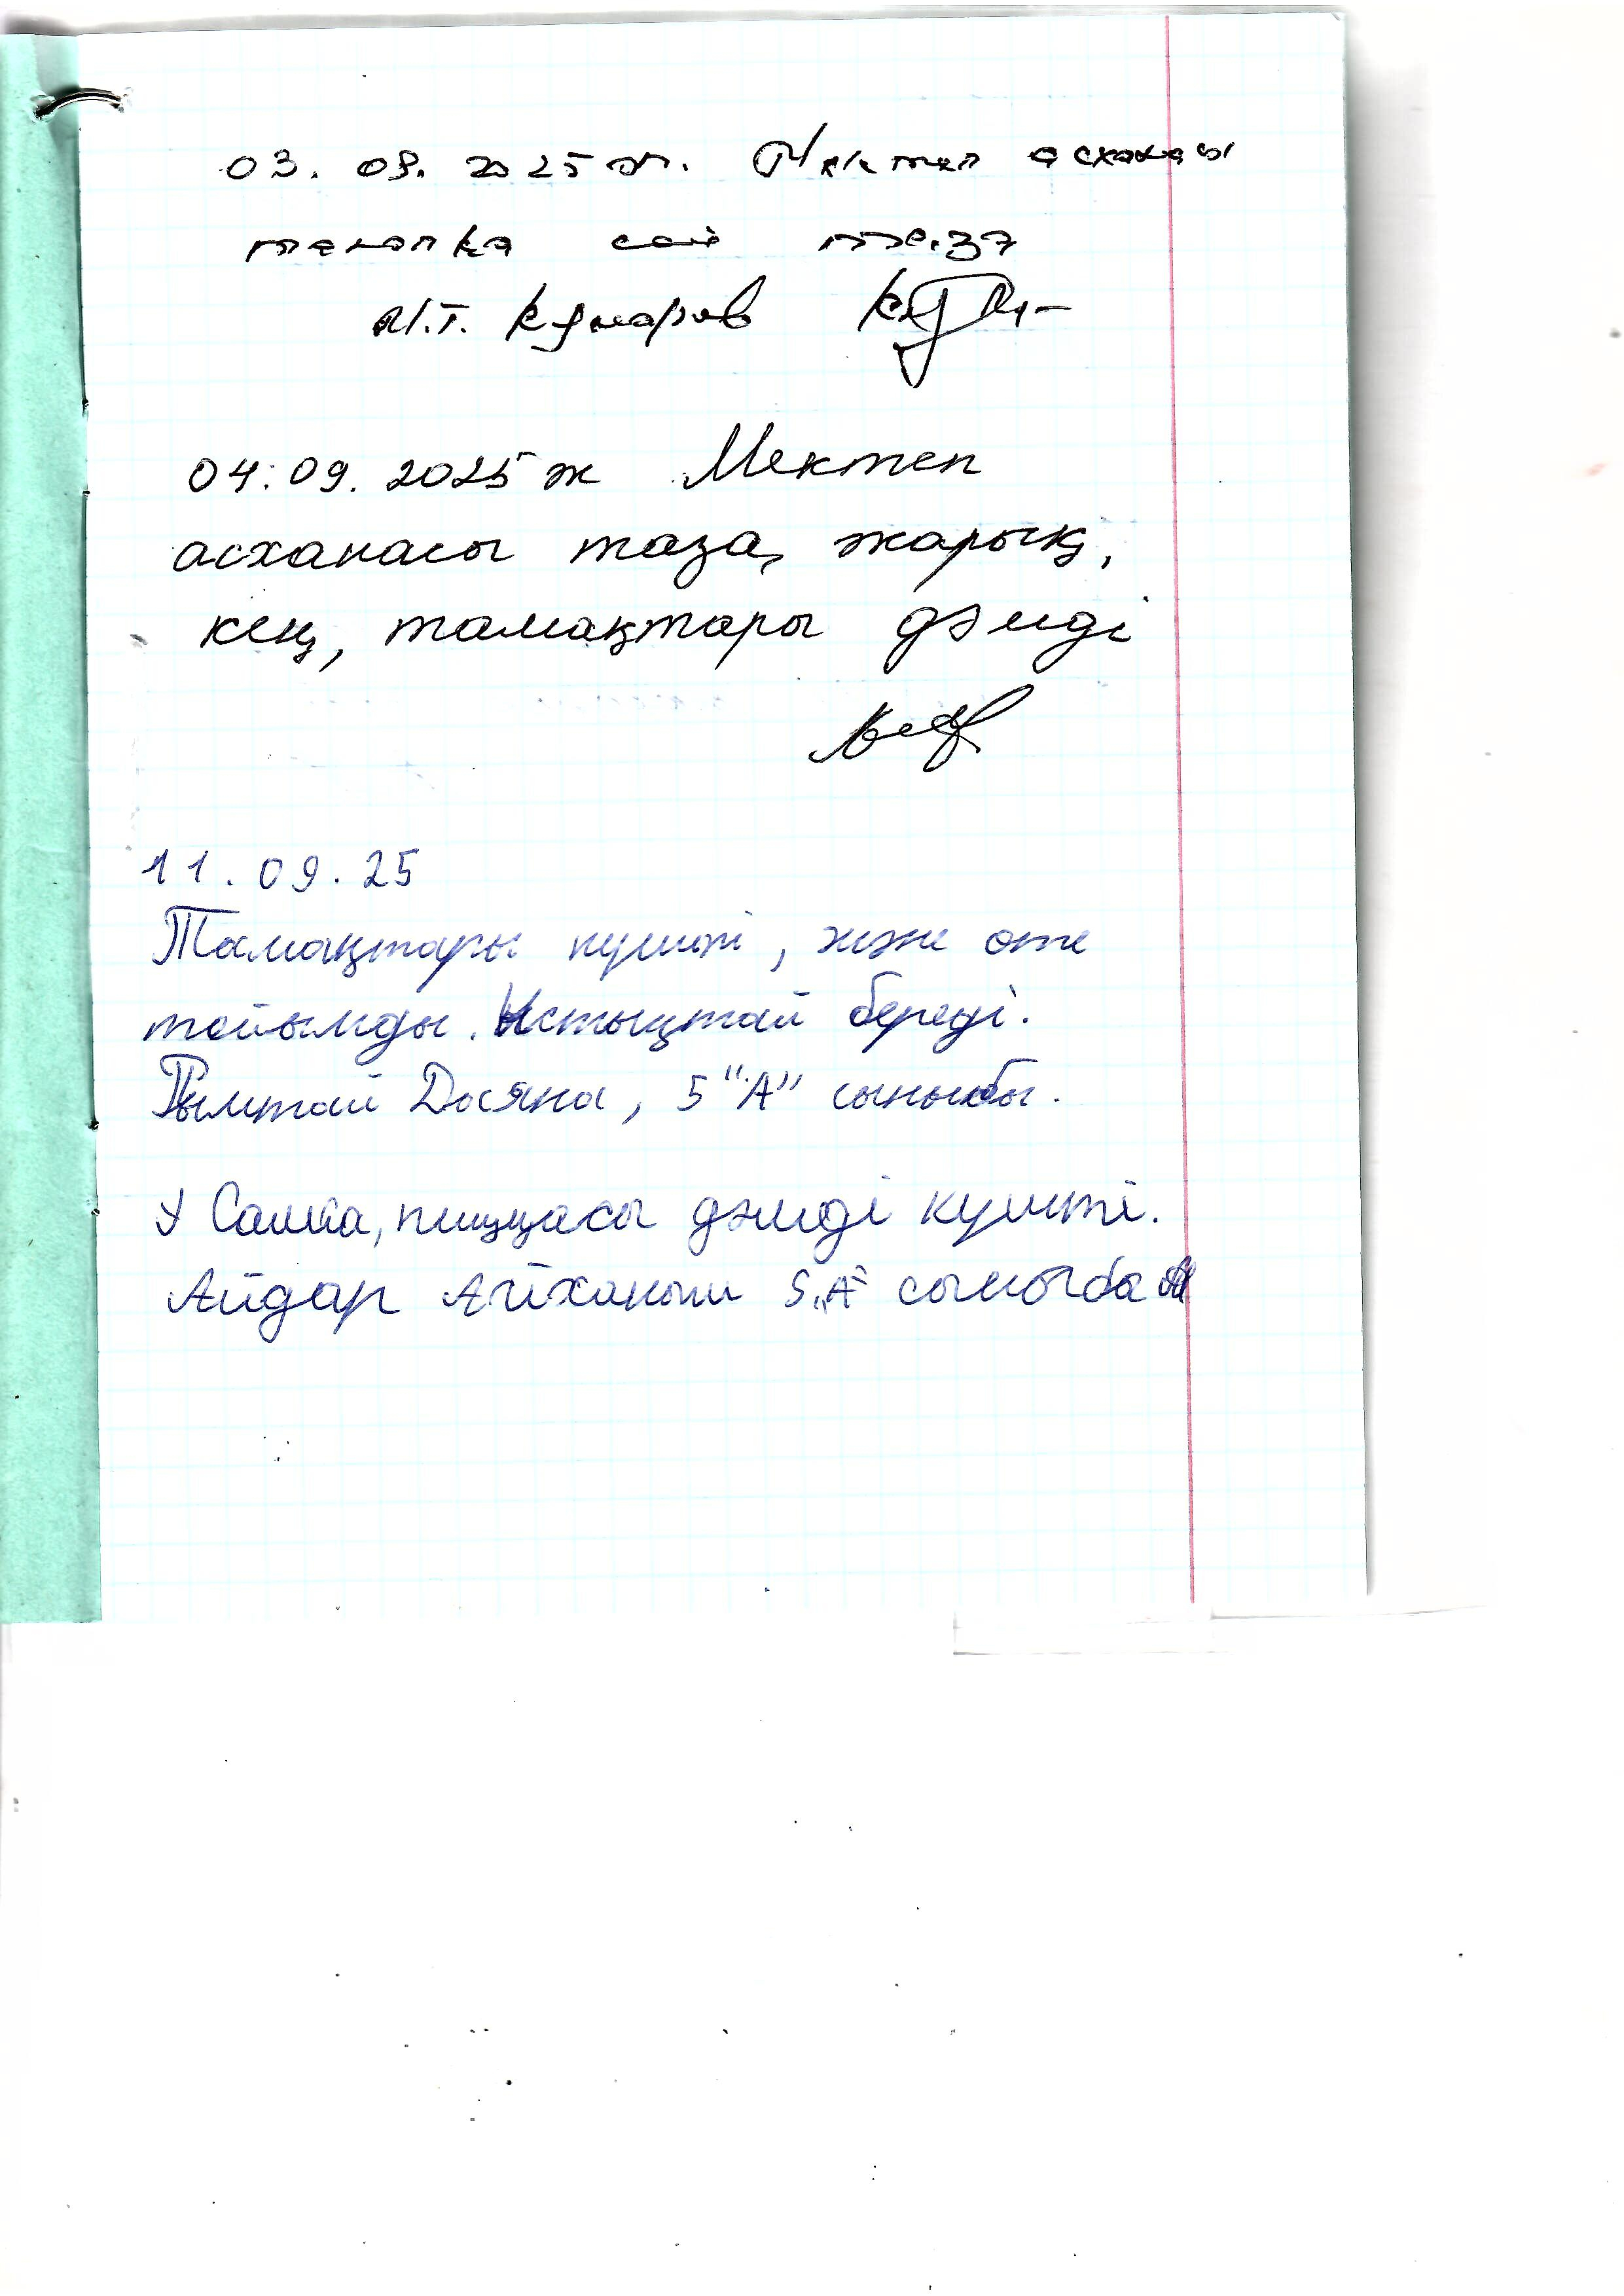 03. 09. 2025 ж. Мектеп асханасы
талапқа сай таза
М.Т. Кумаров
04.09.2025 ж Мектеп
асханасы таза, жарық,
кең, тамақтары дәмді
11.09.25
Тамақтары күшті, және өте
тойымды. Ыстықтай береді.
Рымтай Даяна, 5 "А" сыныбы.
Самса, пиццасы дәмді күшті.
Айдар Айханым 5 "А" сыныбы